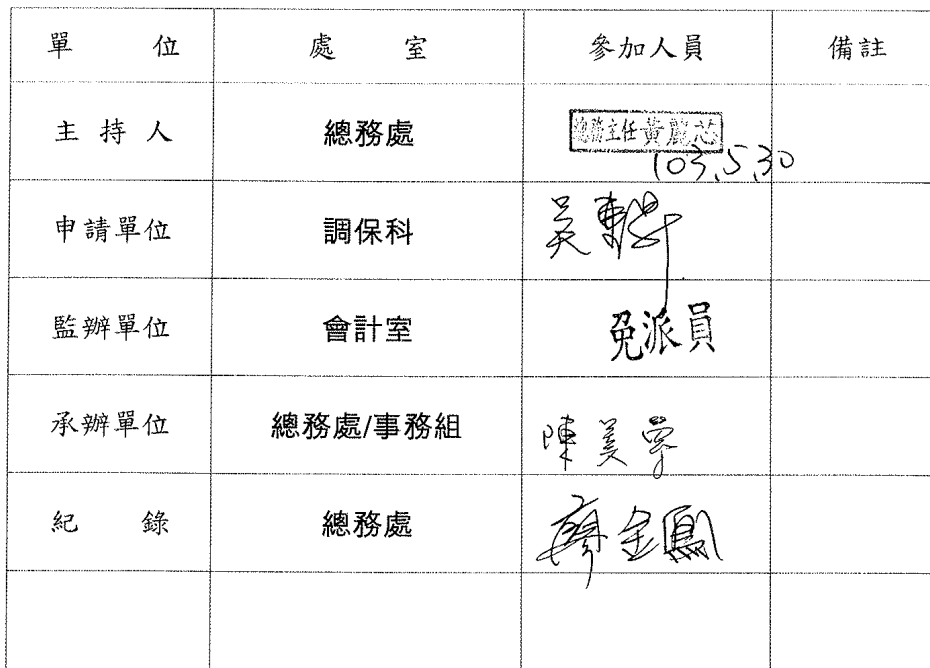 單 位 處 室 參加人員 備註
主 持 人 總務處 總務主任黃麗芯
103.5.30
申請單位 調保科 吳
監辦單位 會計室 免派員
承辦單位 總務處/事務組 陳美
紀 錄 總務處 廖金鳳